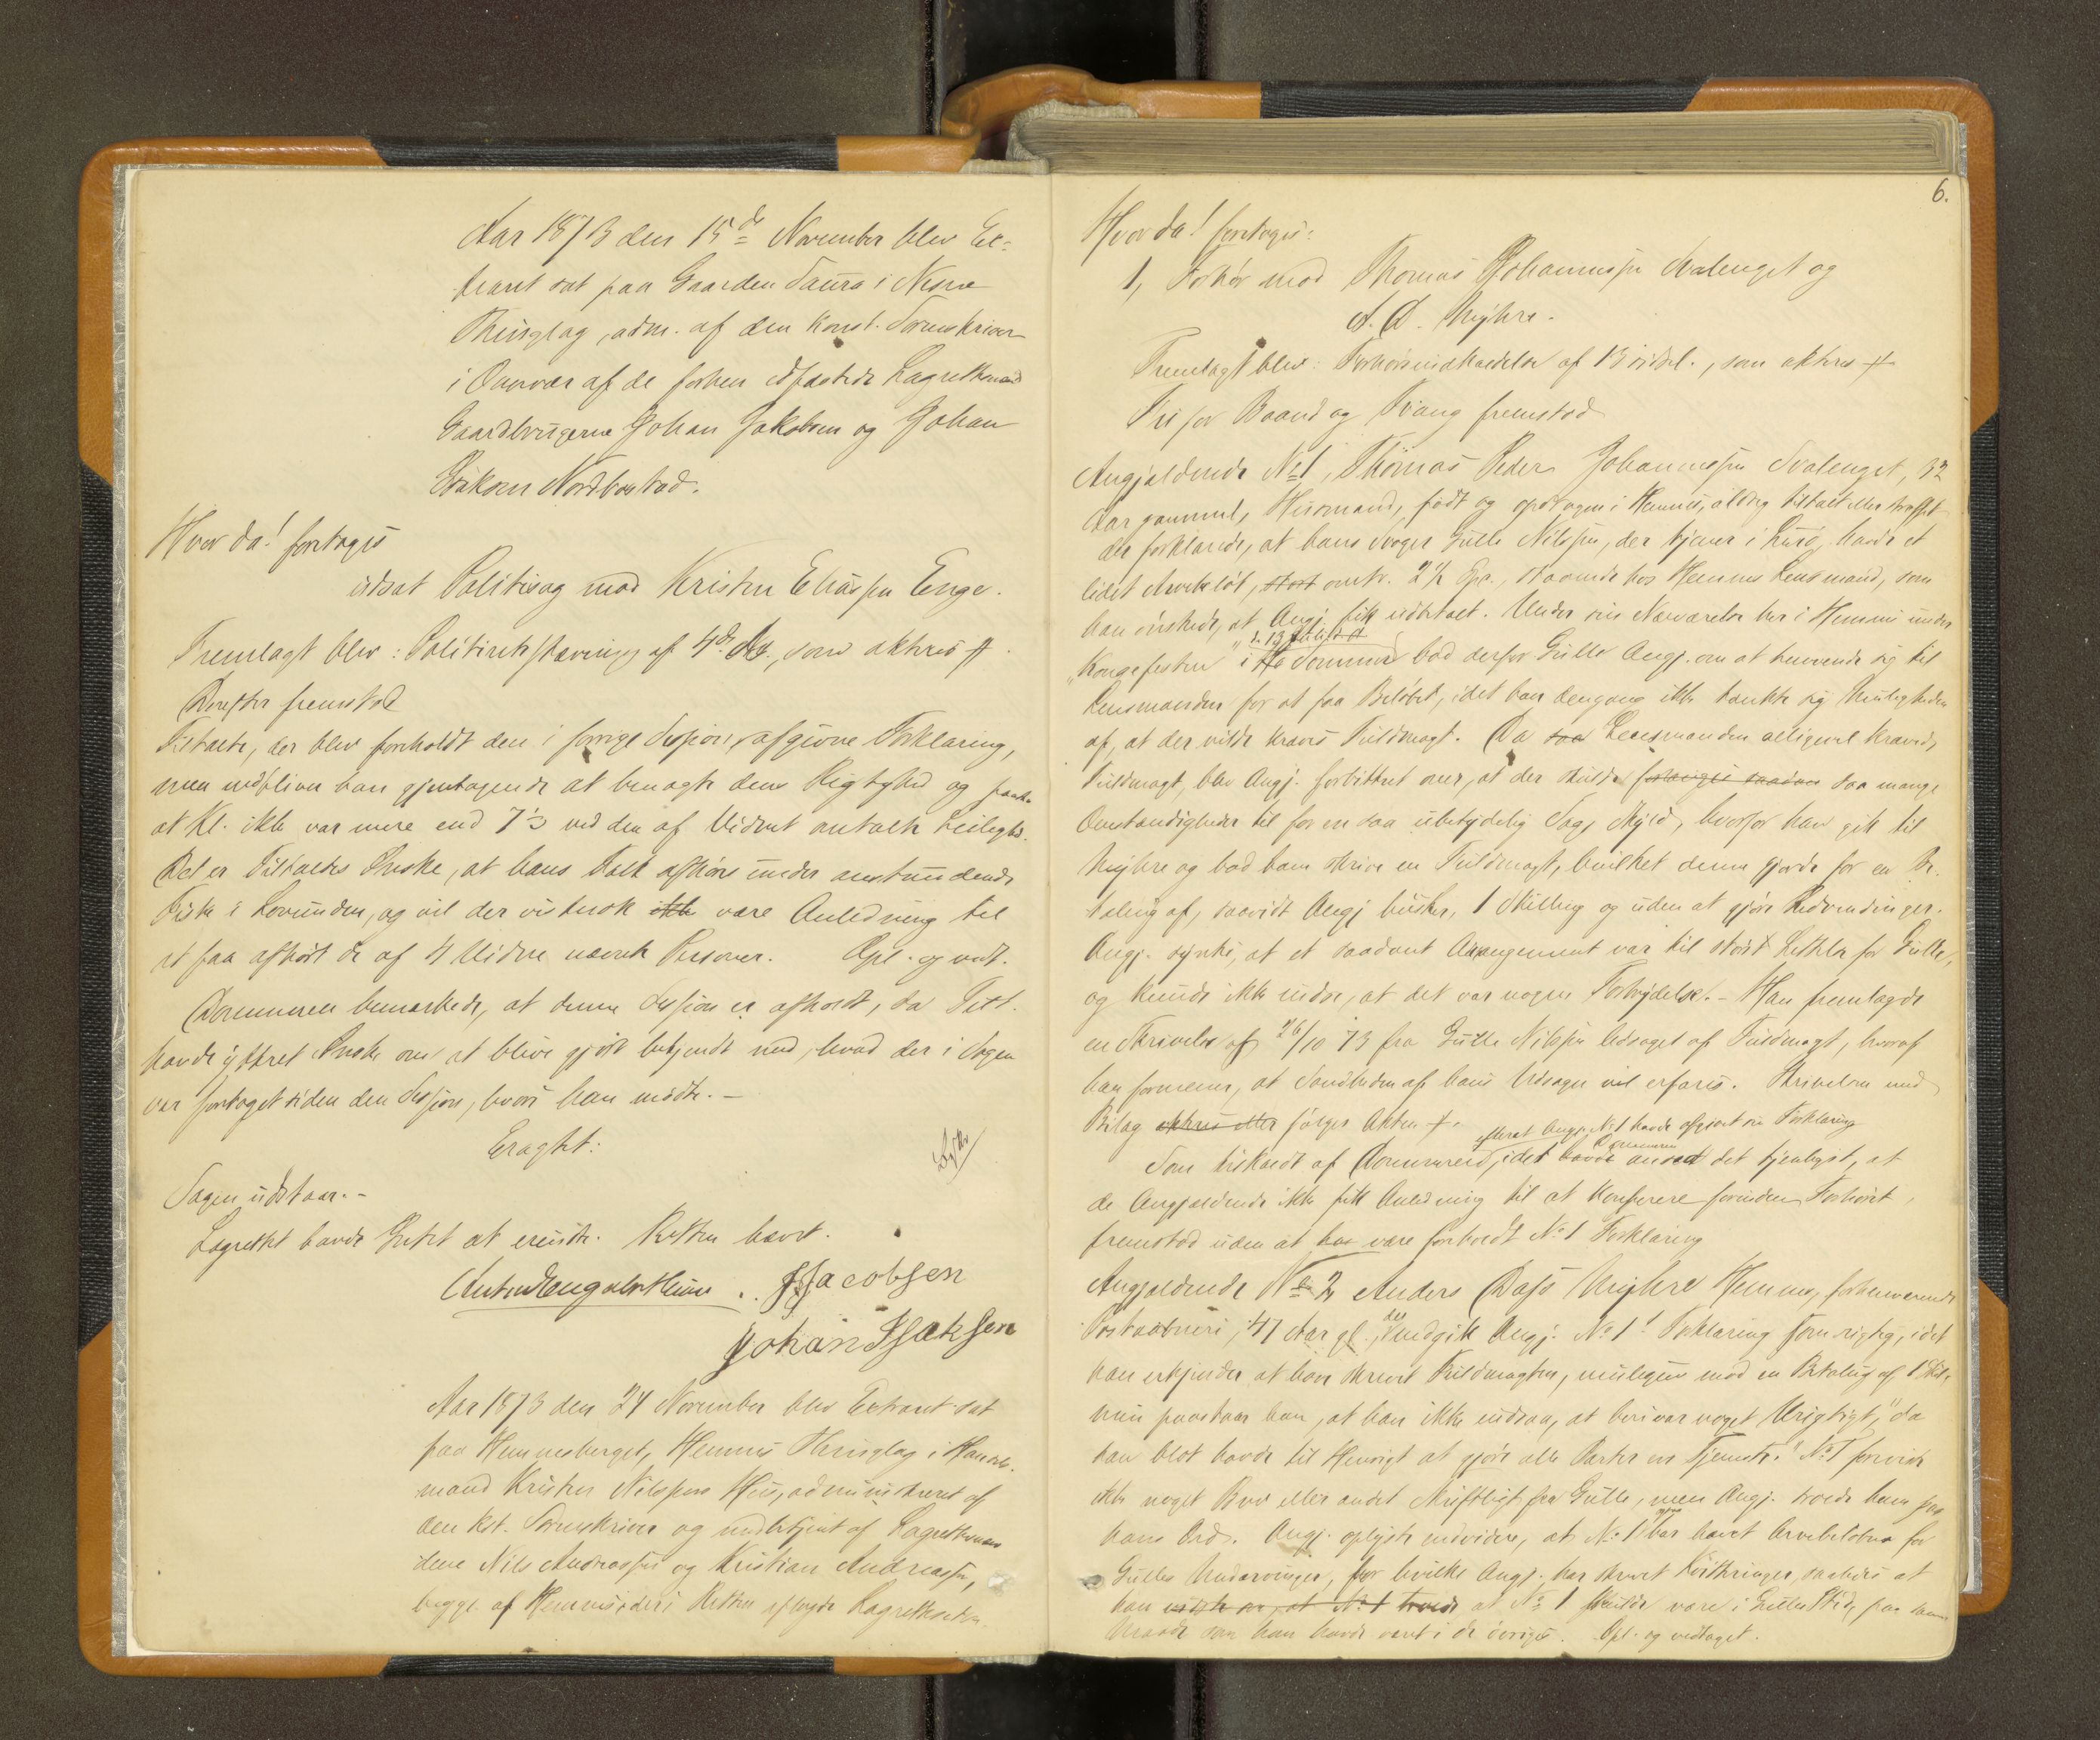 Aar 1873 den 15de November blev Ex-
traret sat paa Gaarden Saura i Nesna
Thinglag, adm. af den konst. Sorenskriver
i Overvær af de forhen edfæstede Lagrettemænd
Gaardbrugerne Johan Jakobsen og Johan
Isaksen Nordbostad.
Hvor da! foretoges
udsat Politisag mod Kristen Eliassen Enge.
Fremlagt blev: Politiretsstævning af 4de ds., som akteres #
Derefter fremstod
Tiltalte, der blev foreholdt den i forrige Session afgivne Forklaring,
men vedbliver han gjentagende at benægte dens Rigtighed og paastaa
at Kl. ikke var mere end 7½ ved den af Vidnet omtalte Leilighed.
Det er Tiltaltes Ønske, at hans Folk afhøres under anstundende
Fiske i Lovunden, og vil der vistnok ikke være Anledning til
at faa afhørt de af 4 Vidne nævnte Personer. Opl. og vedt.
Dommeren bemærkede, at denne Session er afholdt, da Tilt.
havde yttret Ønske om at blive gjort bekjendt med, hvad der i Sagen
var foretaget siden den Session, hvori han mødte. -
Eragtet:
Sagen udstaar. -
Lagrettet havde Intet at erindre. Retten hævet.
JJacobsen
Johan Isaksen
Aar 1873 den 24 November blev Extraret sat
paa Hemnesberget, Hemnes Thinglag i Handels-
mand Kristen Nilssens Hus, administreret af
den kst. Sorenskriver og medbetjent af Lagrettemæn-
dene Nils Andreassen og Kristian Andreassen,
begge af Hemnes, der i Retten aflagde Lagretteseden.
6.
Hvor da! foretoges:
1, Forhør mod Thomas Johannessen Svalenget og
A. D. Myhre.
Fremlagt blev: Forhørsindkaldelse af 13 sidstl., som akteres #
Fri for Baand og Tvang fremstod
Angjældende No 1, Thomas Peder Johannessen Svalenget, 32
Aar gammel, Husmand, født og opdragen i Hemnes, aldrig tiltalt eller straffet
der forklarede, at hans Svoger Gulle Nilssen, der tjener i Lurø, havde et
lidet Arvebeløb, stort omtr. 2½ Spd., staaende hos Hemnes Lensmand, som
han ønskede, at Angj. fik udbetalt. Under sin Nærværelse her i Hemnes under
"Kongefesten" i Sommer bad derfor Gulle Angj. om at henvende sig til
Lensmanden for at faa Beløbet, idet han dengang ikke tænkte sig Muligheden
af, at der vilde kræves Fuldmagt. Da saa Lensmanden alligevel krævede
Fuldmagt, blev Angj. forbittret over, at der skulde forlanges saadan saa mange
Omstændigheder til for en saa ubetydelig Sags Skyld, hvorfor han gik til
Myhre og bad ham skrive en Fuldmagt, hvilket denne gjorde for en Be-
taling af, saavidt Angj husker, 1 Skilling og uden at gjøre Indvendinger.
Angj. syntes, at et saadant Arrangement var til størst Lettelse for Gulle,
og kunde ikke indse, at det var nogen Forbrydelse. - Han fremlagde
en Skrivelse af 26/10 73 fra Gulle Nilssen ledsaget af Fuldmagt, hvoraf
han formener, at Sandheden af hans Udsagn vil erfares. Skrivelsen med
Bilag akteres eller følger Akten #.
efterat Angj. No 1 havde afgivet sin Forklaring
Som tilkaldt af Dommeren, idet Dommeren havde anseet det tjenligst, at
de Angjældende ikke fik Anledning til at konferere forinden Forhøret,
fremstod uden at have være foreholdt No 1 Forklaring
Angjældende No 2, Anders Dass Myhre Hemnes, forhenværende
Postaabner, 41 Aar gl., der vedgik Angj. No 1's Forklaring som rigtig, idet
han erkjender at have skrevet Fuldmagten, muligens mod en Betaling af 1 Skil.
men paastaar han, at han ikke indsaa, at heri var noget Urigtigt, "da
han blot havde til Hensigt at gjøre alle Parter en Tjeneste". No 1 foreviste
ikke noget Brev eller andet Skriftligt fra Gulle, men Angj. troede ham paa
hans Ord. Angj. oplyste endvidere, at No 1 har hævet Arvebeløbene for
Gulles Medarvinger, for hvilke Angj. har skrevet Kvitteringer, saaledes at
han vidste at No 1 troede at No 1 skulde være i Gulles Sted, paa samme
Maade som han havde været i de øvriges. Opl. og vedtaget.